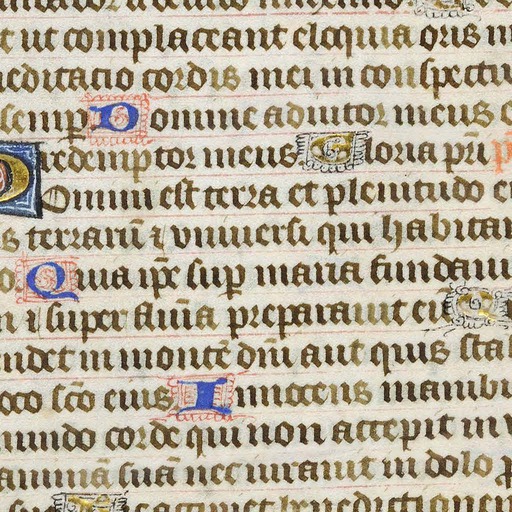 t ut complaceant eloquia oris m
meditatio cordis mei in conspectu
semp Domine adiutor meus e
redemptor meus Gloria pri
Domini est terra et plenitudo e
s terrarū ⁊ vniuersi qui habitan
Quia ipe sup maria fundauit
⁊ super flūīa preparauit eū Q
ndet in monte dm̄ aut quis stab
oco scō eius Innocens manibu
mundo corde qui non accepit in v
animā suā nec iurauit in dolo
accipiet benedictionem